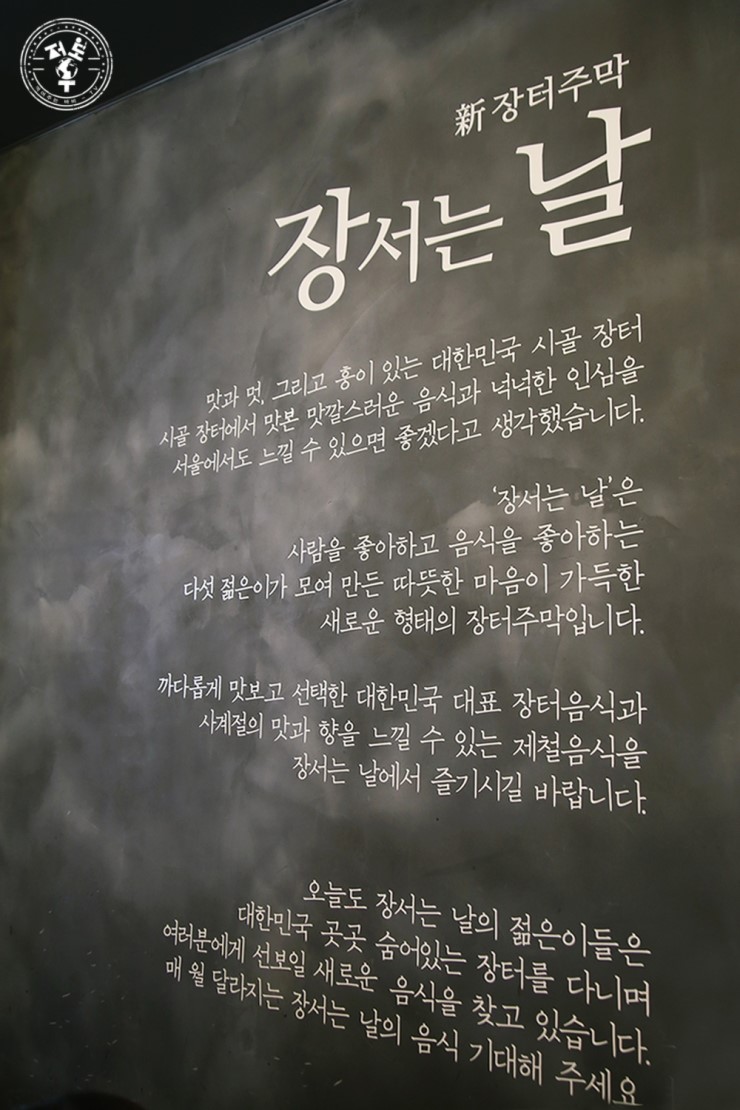 저로우
新 장터주막
장서는 날
맛과 멋, 그리고 흥이 있는 대한민국 시골 장터
시골 장터에서 맛본 맛깔스러운 음식과 넉넉한 인심을
서울에서도 느낄 수 있으면 좋겠다고 생각했습니다.
‘장서는 날’은
사람을 좋아하고 음식을 좋아하는
다섯 젊은이가 모여 만든 따뜻한 마음이 가득한
새로운 형태의 장터주막입니다.
까다롭게 맛보고 선택한 대한민국 대표 장터음식과
사계절의 맛과 향을 느낄 수 있는 제철음식을
장서는 날에서 즐기시길 바랍니다.
오늘도 장서는 날의 젊은이들은
대한민국 곳곳 숨어있는 장터를 다니며
여러분에게 선보일 새로운 음식을 찾고 있습니다.
매 월 달라지는 장서는 날의 음식 기대해 주세요